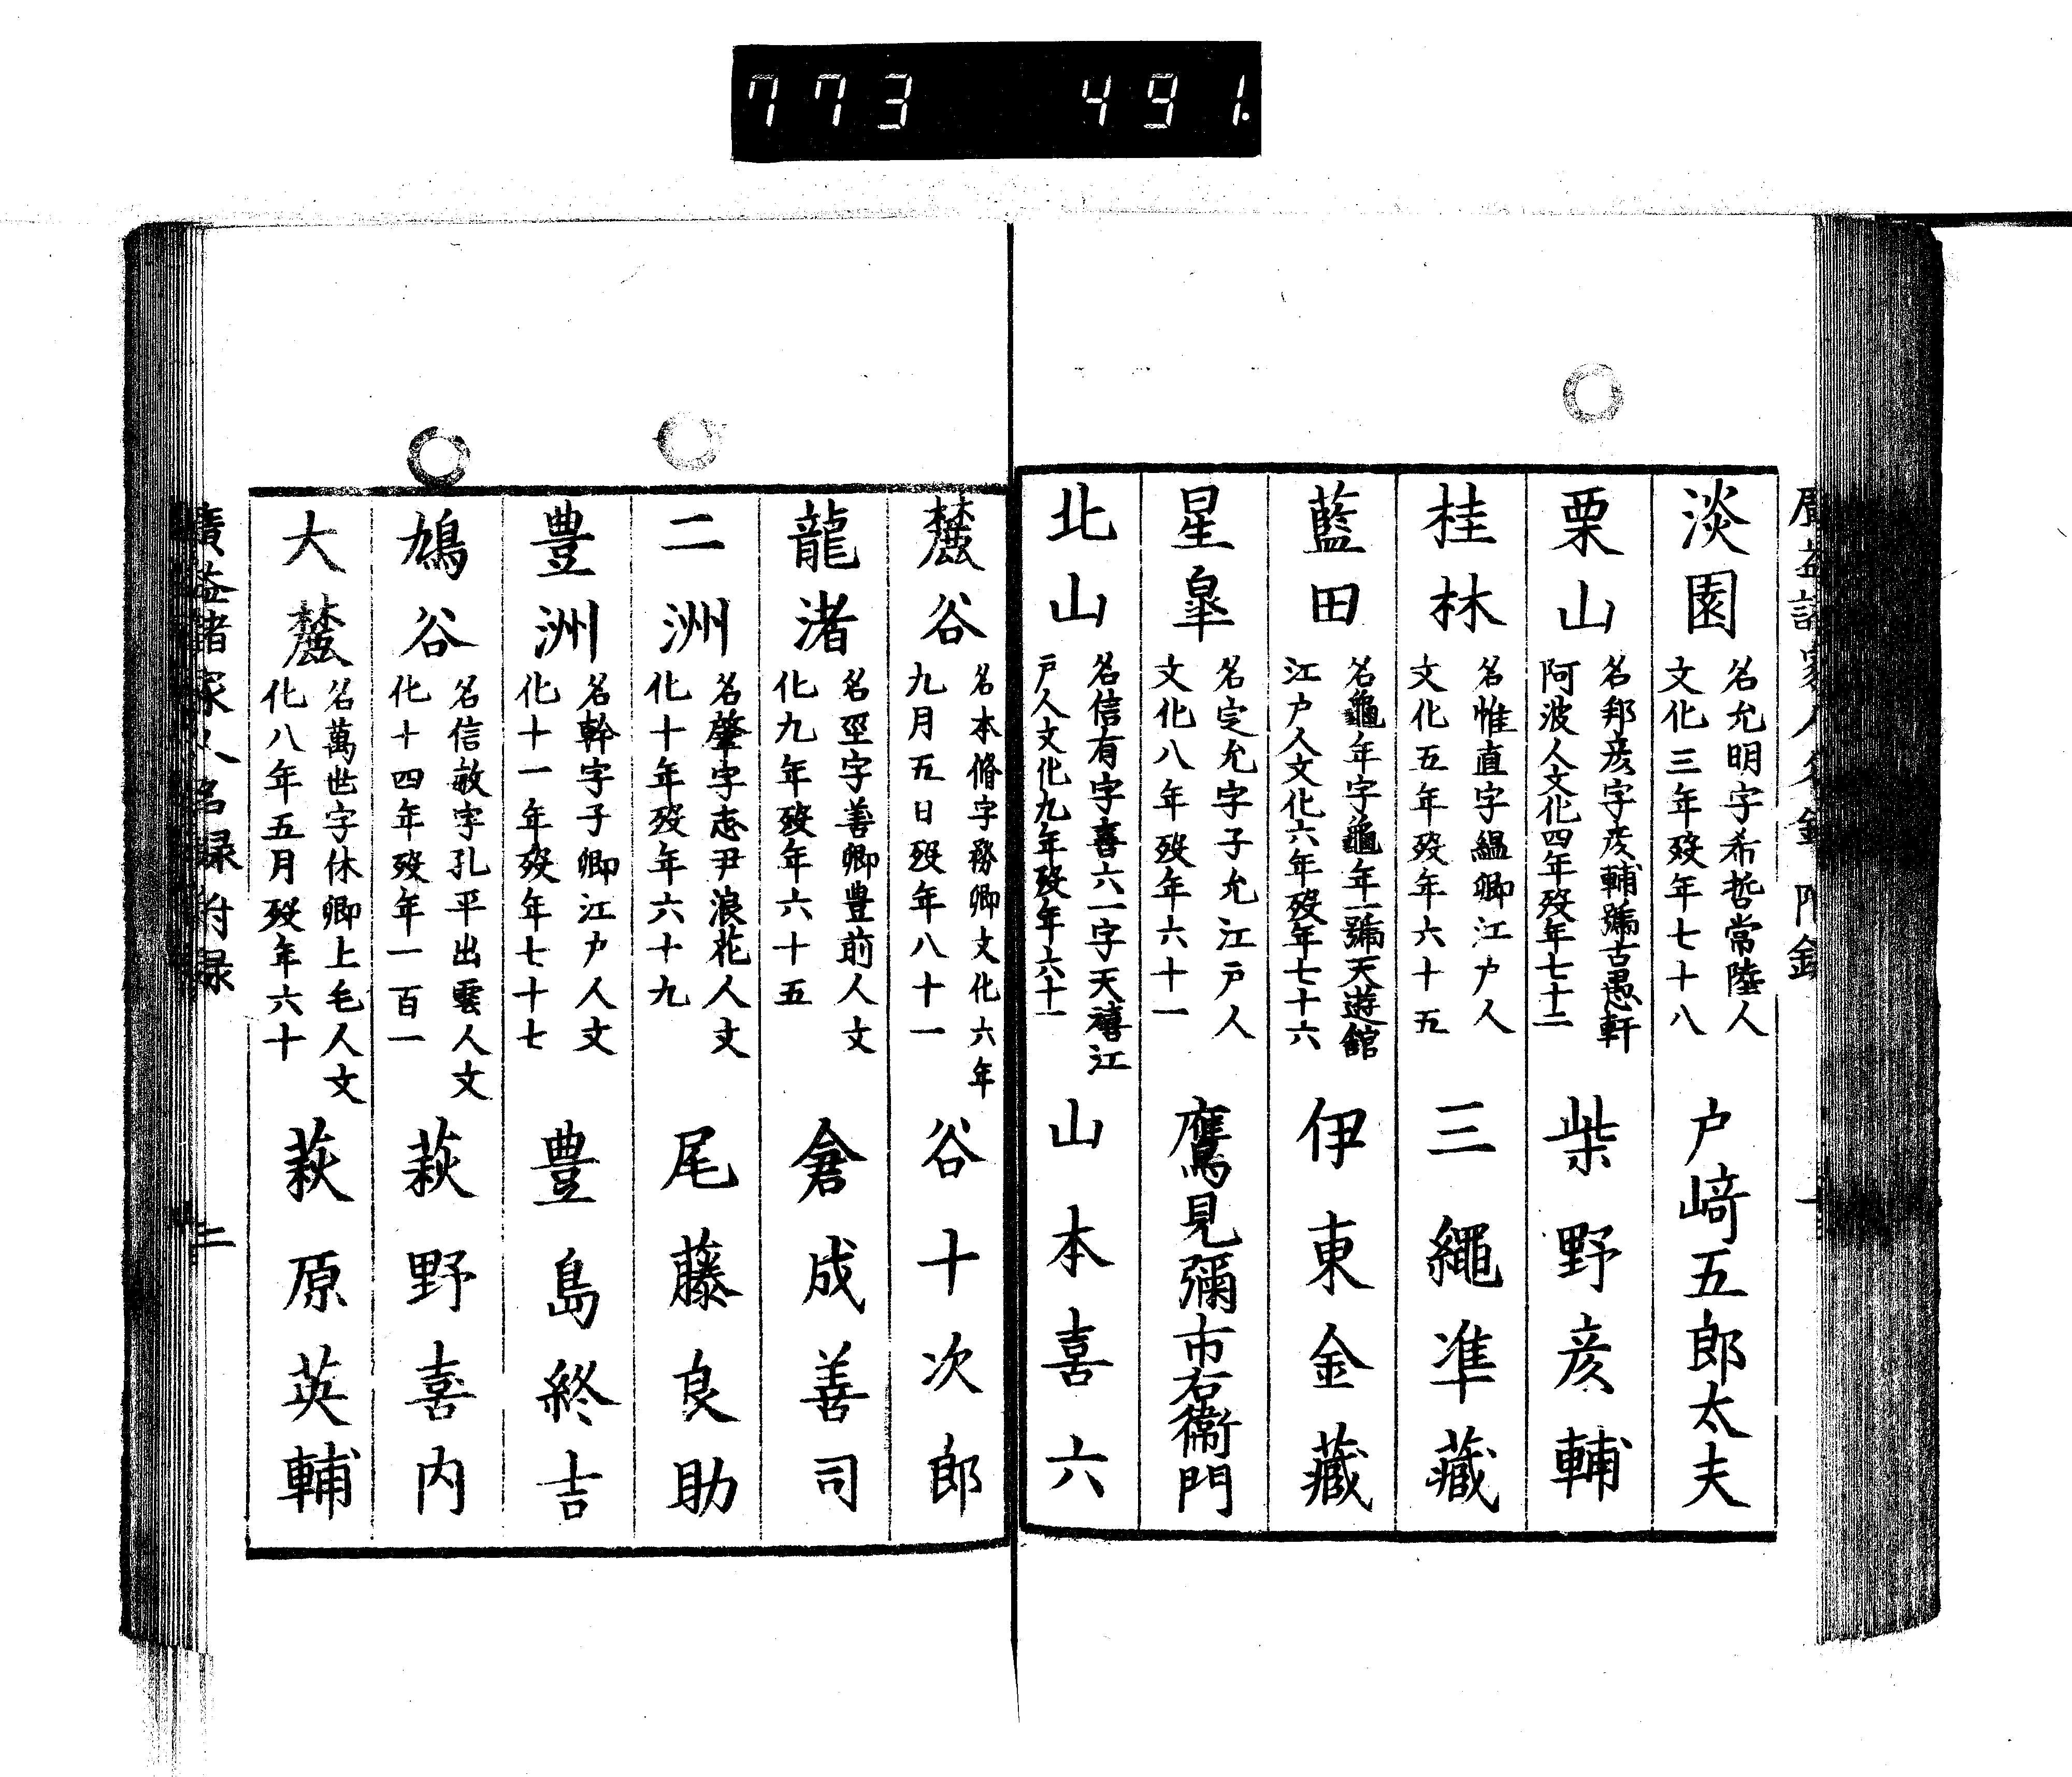 773 491.
淡園 名允明字希哲常陸人
文化三年歿年七十八 戸﨑五郎太夫
栗山 名邦彦字彦輔號古愚軒
阿波人文化四年歿年七十二 柴野彦輔
桂林 名惟直字緼卿江戸人
文化五年歿年六十五 三繩準藏
藍田 名龜年字龜年一號天遊館
江戸人文化六年歿年七十六 伊東金藏
星皐 名定允字子允江戸人
文化八年歿年六十一 鷹見彌市右衞門
北山 名信有字喜六一字天禧江
戸人文化九年歿年六十一 山本喜六
麓谷 名本脩字務卿文化六年
九月五日歿年八十一 谷十次郎
龍渚 名巠字善卿豊前人文
化九年歿年六十五 倉成善司
二洲 名肇字志尹浪花人文
化十年歿年六十九 尾藤良助
豊洲 名幹字子卿江戸人文
化十一年歿年七十七 豊島終吉
鳩谷 名信敏字孔平出雲人文
化十四年歿年一百一 萩野喜内
大麓 名萬世字休卿上毛人文
化八年五月歿年六十 萩原英輔
廣益諸家人名録附録 二